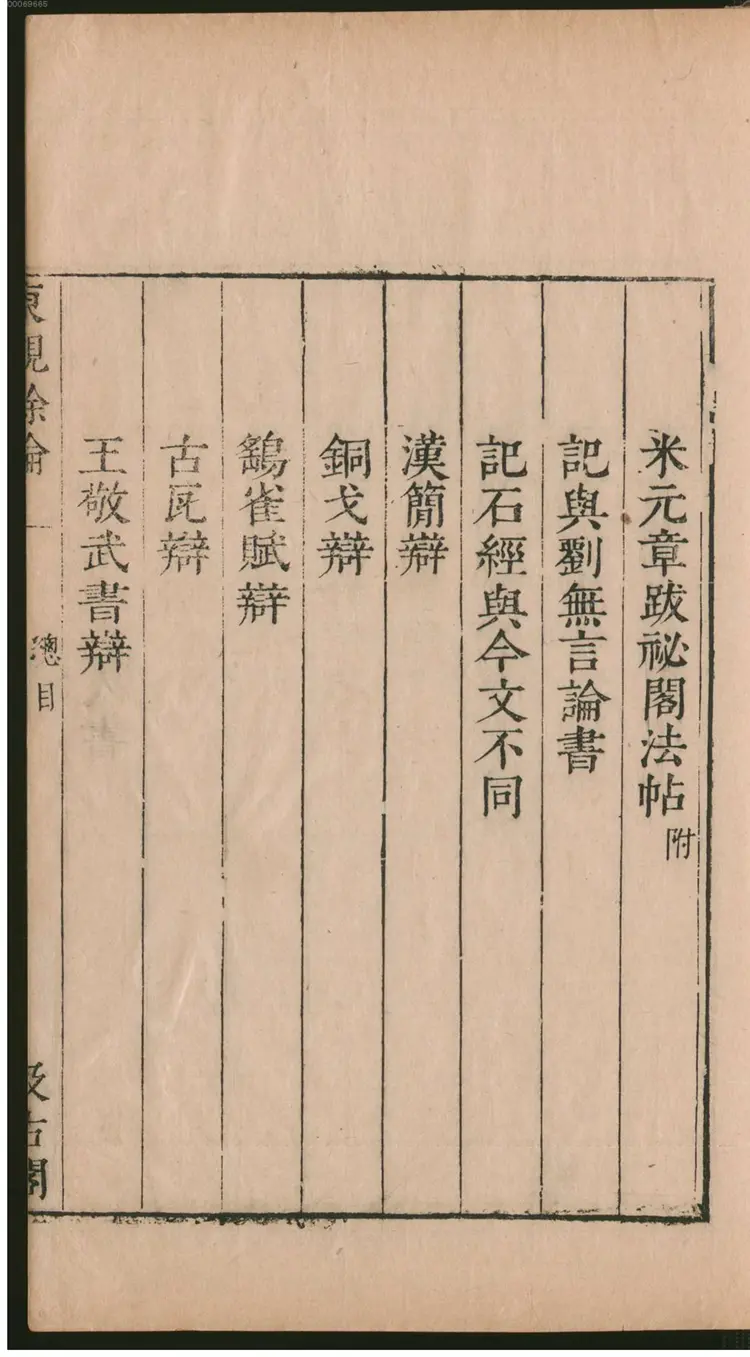 米元章跋祕閣法帖附
記與劉無言論書
記石經與今文不同
漢簡辯
銅戈辯
鷂雀賦辯
古瓦辯
王敬武書辯
東觀餘論
總目
汲古閣
00069665